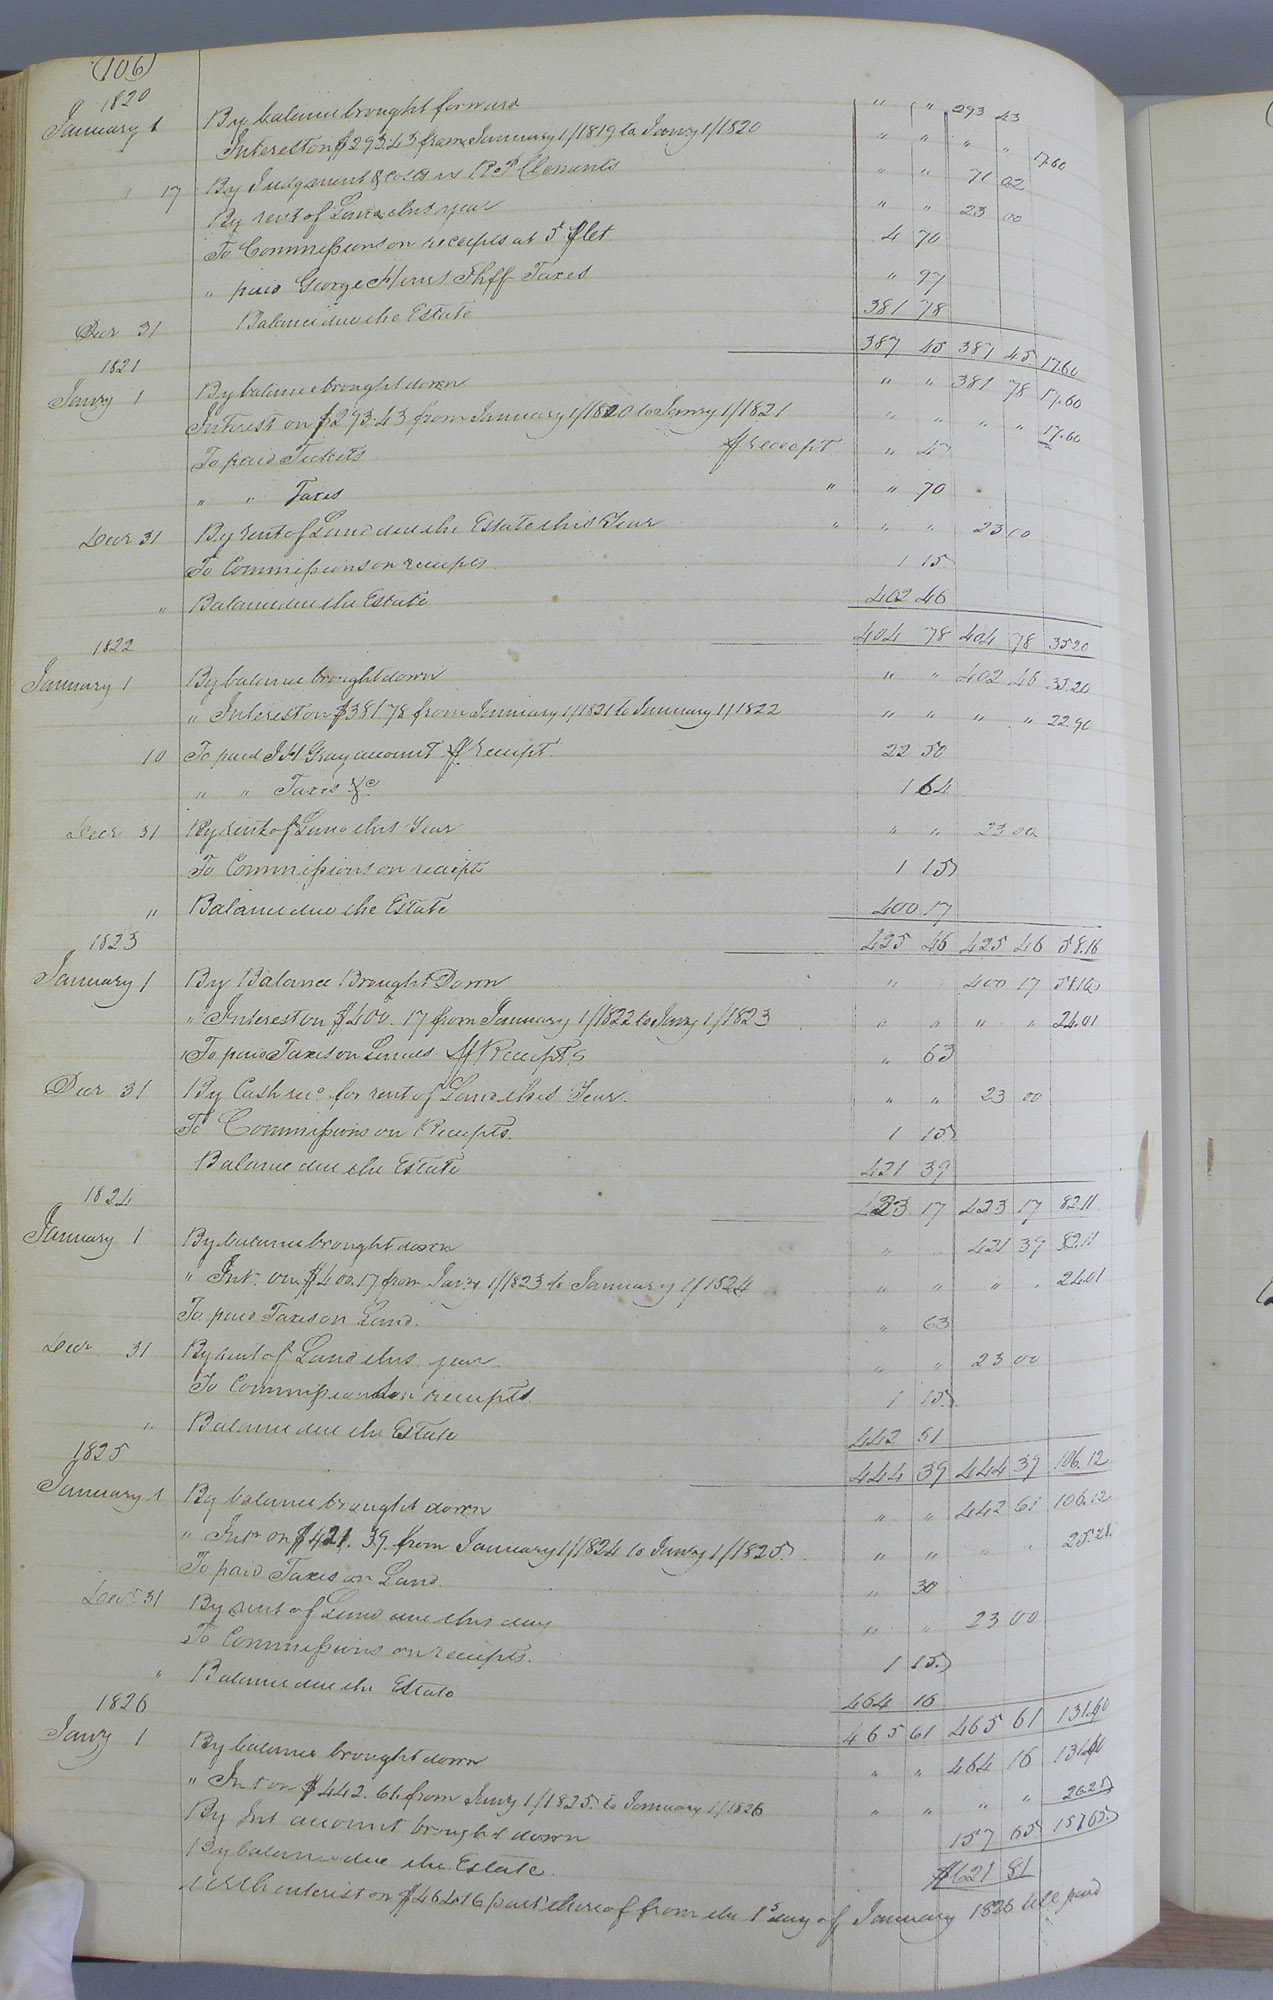 (106)
1820
January 1 By balance brought forward " " 293 43
Interest on $293.43 from January 1/1819 to Janry 1/1820 " " " " 17.60
" 17 By Judgment & costs vs Clements " " 71 02
By rent of Land this year " " 23 00
To Commissions on receipts at 5 pr Ct. 4 70
" paid George Shff Taxes " 97
Decr 31 Balance due the Estate 381 78
387 45 387 45 17.60
1821
Janry 1 By balance brought down " " 381 78 17.60
Interest on $293.43 from January 1/1820 to Janry 1/1821 " " " " 17.60
To paid Tickets pr receipt " 47
" " Taxes " " 70
Decr 31 By rent of Land due the Estate this Year " " " 23 00
To Commissions on receipts 1 15
" Balance due the Estate 402 46
404 78 404 78 35.20
1822
January 1 By balance brought down " " 402 46 35.20
" Interest on $381.78 from January 1/1821 to January 1/1822 " " " " 22.90
10 To paid J H Gray account pr receipt. 22 50
" " Taxes &c 1 64
Decr 31 By rent of Land this Year " " 23 00
To Commissions on receipts 1 15
" Balance due the Estate 400 17
425 46 425 46 58.16
1823
January 1 By Balance Brought Down " " 400 17 58.10
" Interest on $400.17 from January 1/1822 to Janry 1/1823 " " " " 24.01
To paid Taxes on Lands pr Receipts " 63
Decr 31 By Cash recd for rent of Land this Year. " " 23 00
To Commissions on Receipts. 1 15
Balance due the Estate 421 39
1824
423 17 423 17 82.11
January 1 By balance brought down " " 421 39 82.11
" Int. on $400.17 from Jany. 1/1823 to January 1/1824 " " " " 24.01
To paid Taxes on Land. " 63
Decr 31 By rent of Land this year. " " 23 00
To Commissions on receipts 1 15
" Balance due the Estate 442 61
1825
444 39 444 39 106.12
January 1 By balance brought down " " 442 61 106.12
" Intr on $421.39. from January 1/1824 to Janry 1/1825. " " " " 25.28
To paid Taxes on Land. " 30
Decr 31 By rent of Land due this day " " 23 00
To Commissions on receipts. 1 15
" Balance due the Estate 464 16
1826
465 61 465 61 131.40
Janry 1 By balance brought down " " 464 16 131.40
" Int on $442.61. from Janry 1/1825. to January 1/1826 " " " " 26.25
By Int account brought down 157 65 157.65
By balance due the Estate. $621 81
With interest on $464.16 part thereof from the 1st day of January 1826 till paid